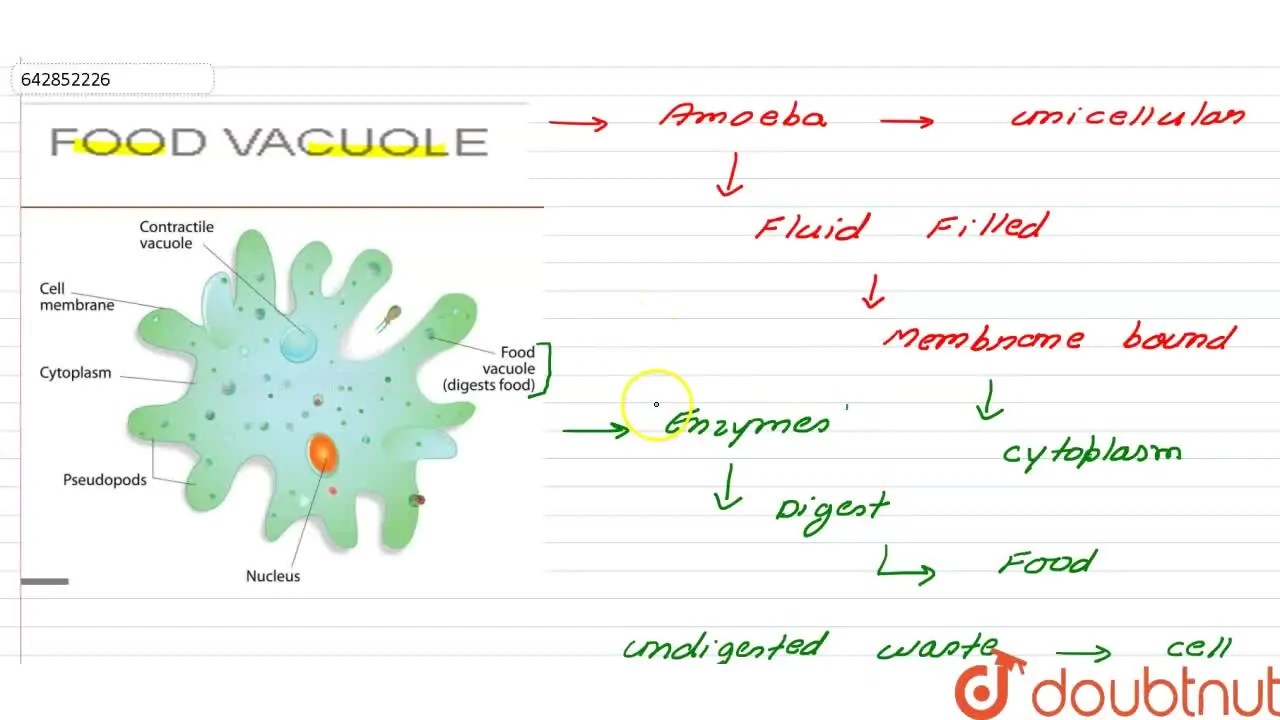 642852226
FOOD VACUOLE
Contractile
vacuole
Cell
membrane
Cytoplasm
Pseudopods
Nucleus
Food
vacuole
(digests food)
→ Amoeba → unicellular
↓
Fluid Filled
↓
Membrane bound
↓
cytoplasm
→ Enzymes
↓
Digest
↳ Food
undigested waste → cell
doubtnut